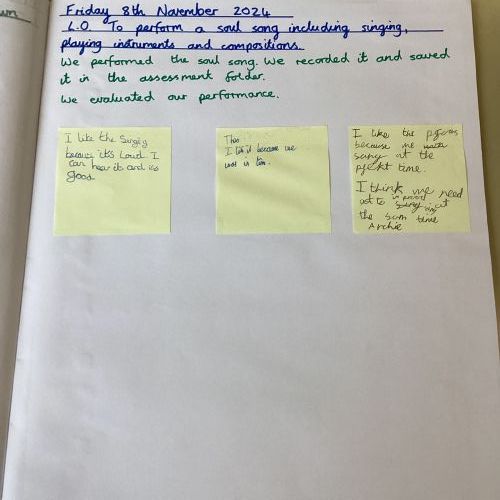 Friday 8th November 2024
L.O. To perform a soul song including singing,
playing instruments and compositions.
We performed the soul song. We recorded it and saved
it in the assessment folder.
We evaluated our performance.
I like the
because it's Loud I
can hear it and it's
good.
This
I lik it because we
was in tim.
I like the
because we
sang at the
time.
I think we need
at
the sam time
Archie